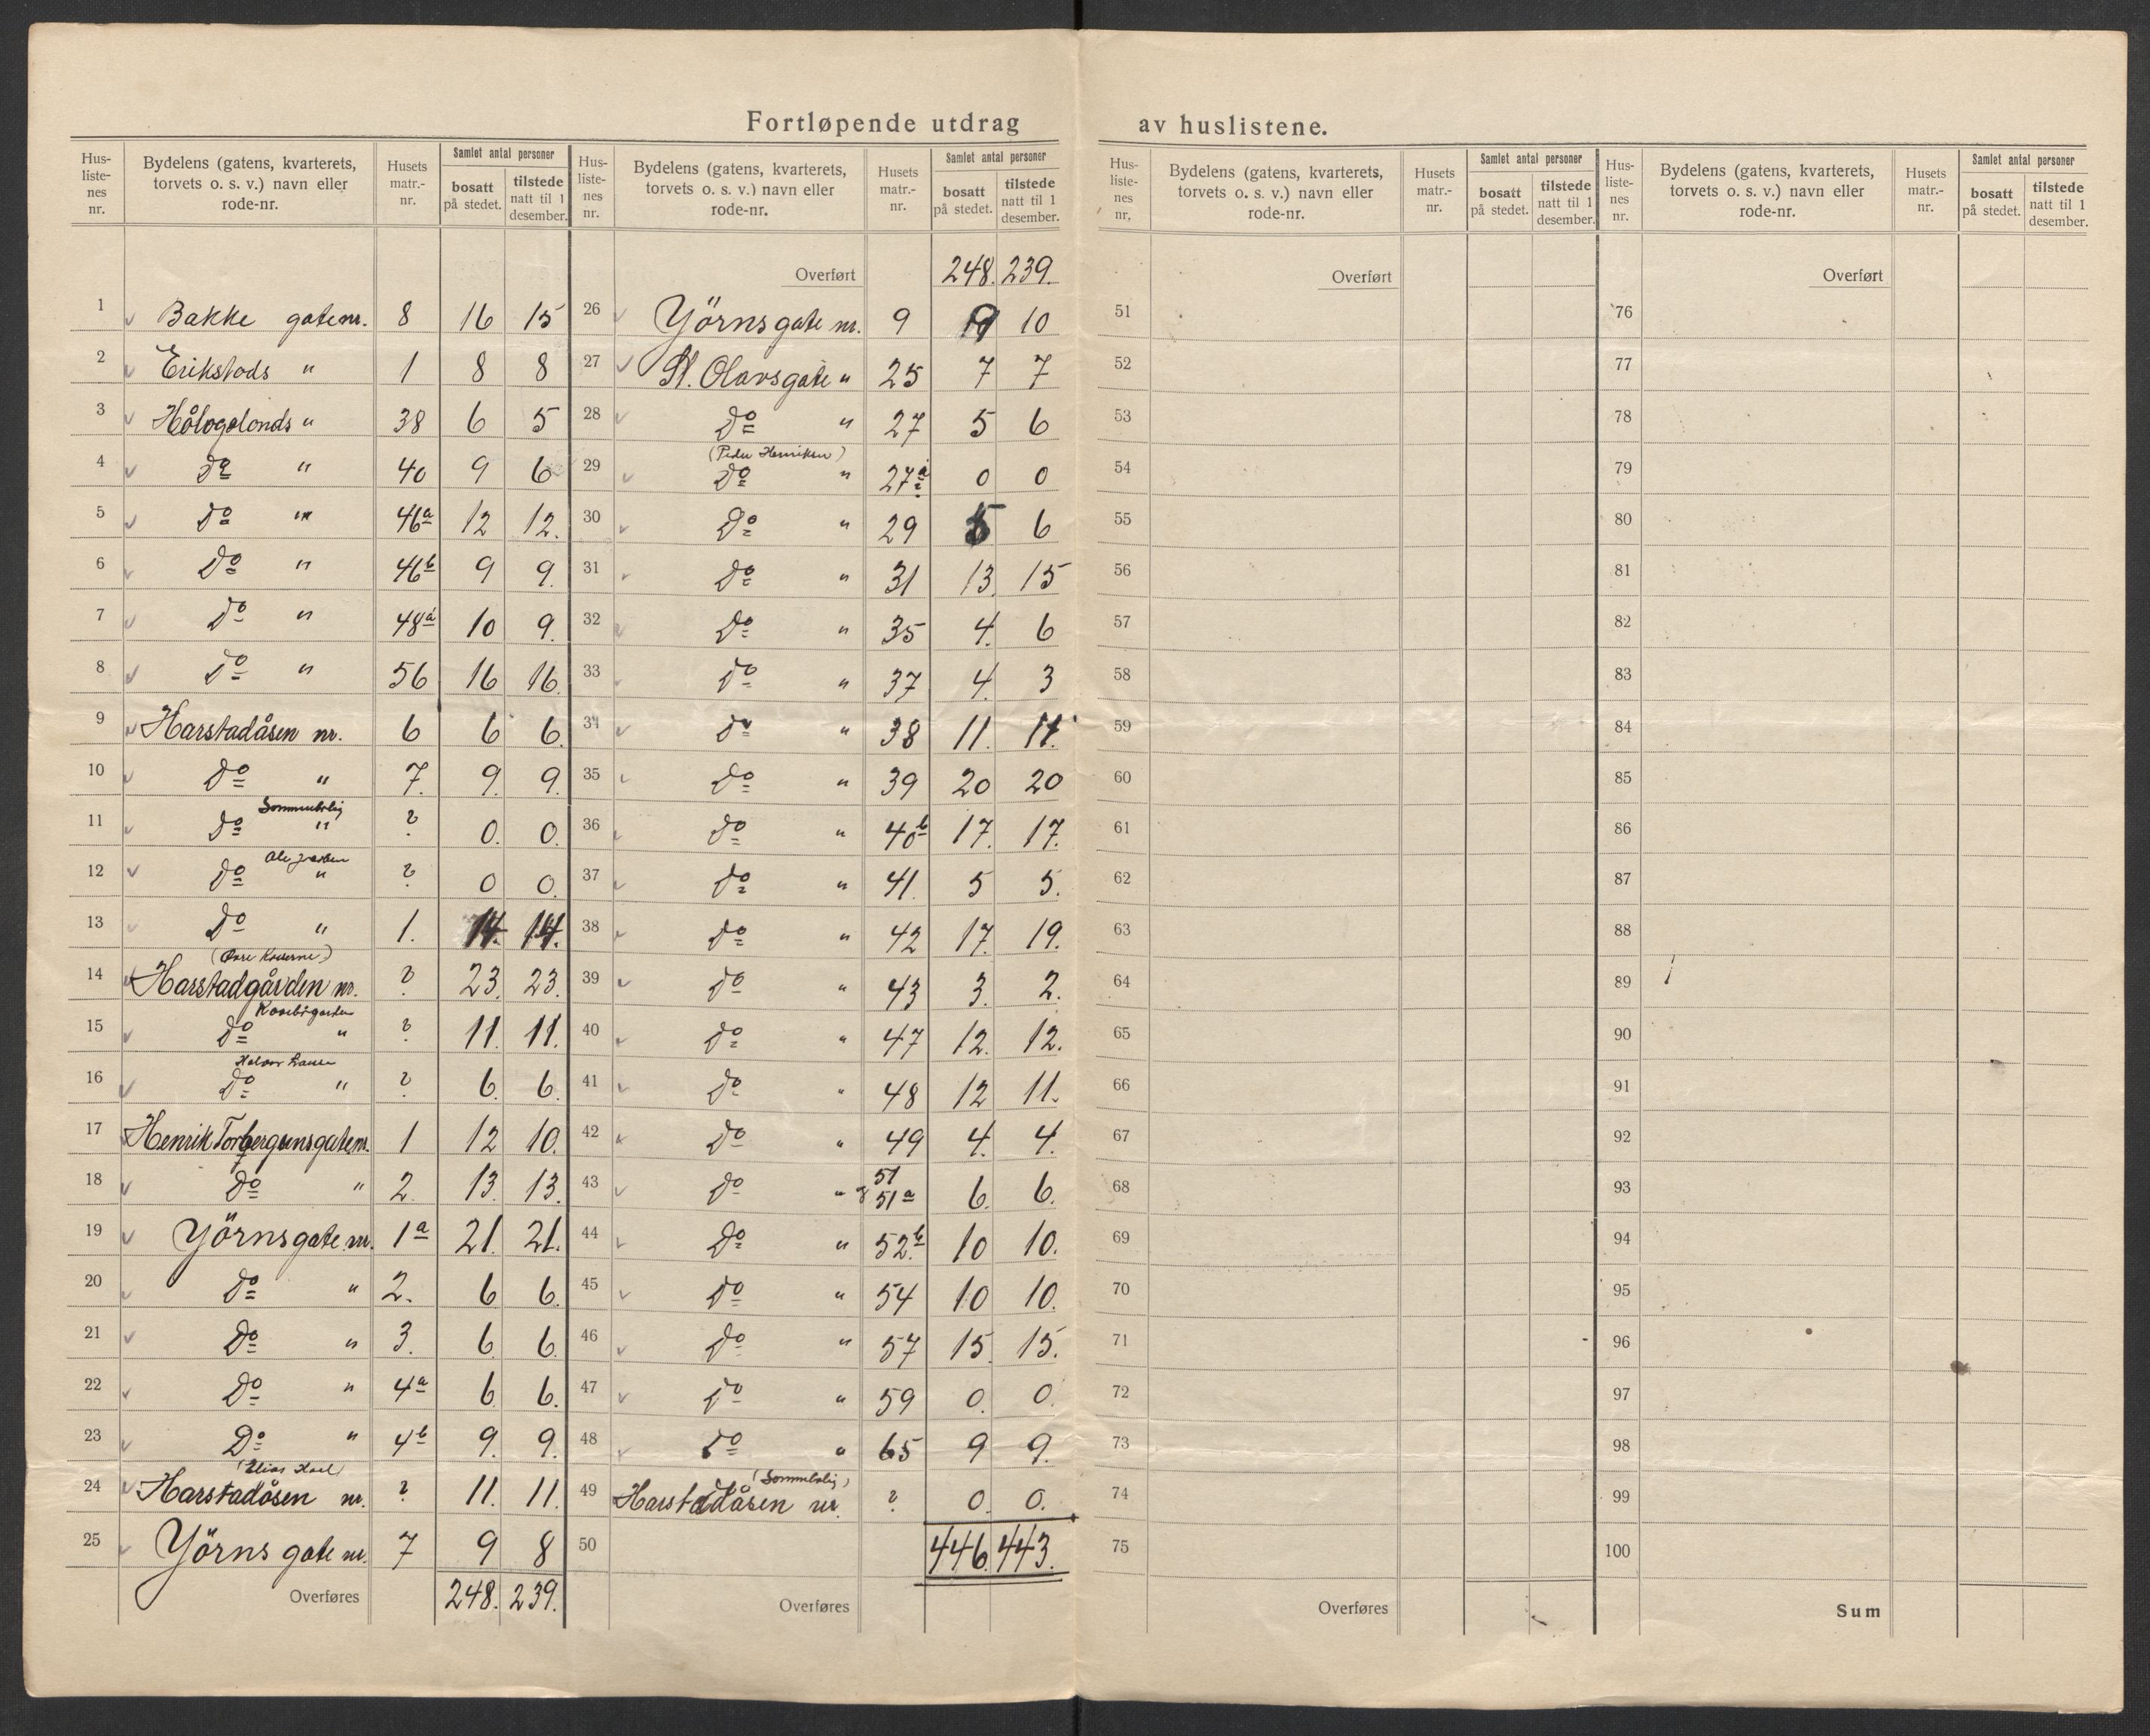 Fortløpende utdrag av huslistene.
Hus-listenes nr. | Bydelens (gatens, kvarterets, torvets o. s. v.) navn eller rode-nr. | Husets matr.-nr. | Samlet antal personer bosatt på stedet. | tilstede natt til 1 desember.
1 Bakke gate nr. 8 16 15
2 Erikstads " 1 8 8
3 Hålogalands " 38 6 5
4 Do " 40 9 6
5 Do " 46a 12 12.
6 Do " 46b 9 9.
7 Do " 48a 10 9.
8 Do " 56 16 16.
9 Harstadåsen nr. 6 6 6.
10 Do " 7. 9. 9.
Sommerbolig
11 Do " ? 0. 0.
12 Do " ? 0 0.
13 Do " 1. 14. 14.
14 Harstadgården nr. ? 23. 23.
15 Do " ? 11. 11.
16 Do " ? 6. 6.
17 Henrik Torbergsensgate nr. 1 12 10.
18 Do " 2. 13. 13.
19 Yörnsgate nr. 1a 21. 21.
20 Do " 2. 6 6.
21 Do " 3. 6 6.
22 Do " 4a 6 6.
23 Do " 4b 9. 9.
24 Harstadåsen nr. ? 11. 11.
25 Yörnsgate nr. 7 9 8
Overføres 248. 239.
Hus-listenes nr. | Bydelens (gatens, kvarterets, torvets o. s. v.) navn eller rode-nr. | Husets matr.-nr. | Samlet antal personer bosatt på stedet. | tilstede natt til 1 desember.
Overført 248. 239.
26 Yörnsgate nr. 9 9 10
27 St. Olavsgate " 25 7 7
28 Do " 27 5 6
(Peder Henriksen)
29 Do " 27a 0 0
30 Do " 29 5 6
31 Do " 31 13. 15
32 Do " 35 4. 6
33 Do " 37 4. 3
34 Do " 38 11. 11.
35 Do " 39 20 20
36 Do " 40b 17. 17.
37 Do " 41. 5 5.
38 Do " 42 17. 19.
39 Do " 43 3. 2.
40 Do " 47 12. 12.
41 Do " 48 12 11.
42 Do " 49 4. 4.
43 Do " 51 & 51a 6. 6.
44 Do " 52b 10 10.
45 Do " 54 10 10.
46 Do " 57 15. 15.
47 Do " 59 0. 0.
48 Do " 65 9 9.
(Sommerbolig)
49 Harstadåsen nr. ? 0. 0.
50 446. 443.
Overføres
Hus-listenes nr. | Bydelens (gatens, kvarterets, torvets o. s. v.) navn eller rode-nr. | Husets matr.-nr. | Samlet antal personer bosatt på stedet. | tilstede natt til 1 desember.
Overført
51
52
53
54
55
56
57
58
59
60
61
62
63
64
65
66
67
68
69
70
71
72
73
74
75
Overføres
Hus-listenes nr. | Bydelens (gatens, kvarterets, torvets o. s. v.) navn eller rode-nr. | Husets matr.-nr. | Samlet antal personer bosatt på stedet. | tilstede natt til 1 desember.
Overført
76
77
78
79
80
81
82
83
84
85
86
87
88
89
90
91
92
93
94
95
96
97
98
99
100
Sum